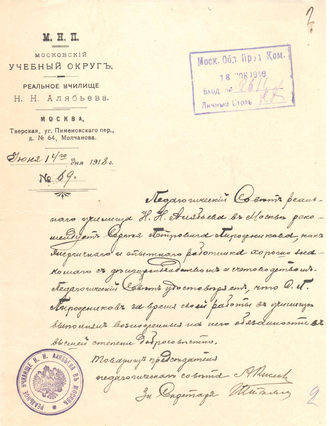 2
М. Н. П.
МОСКОВСКІЙ
УЧЕБНЫЙ ОКРУГЪ.
РЕАЛЬНОЕ УЧИЛИЩЕ
Н. Н. Алябьева.
МОСКВА,
Тверская, уг. Пименовскаго пер.,
д. № 64, Молчанова.
Іюня 14го дня 1918 г.
№ 69.
Моск. Обл. Прод. Ком.
Вход. №
Личный Столъ
Педагогическій Совѣтъ реаль-
наго училища Н. Н. Алябьева въ Москвѣ реко-
мендуетъ Сергѣя Петровича какъ
энергичнаго и опытнаго работника хорошо зна-
комаго съ дѣлопроизводствомъ и счетоводствомъ.
Педагогическій Совѣтъ удостовѣряетъ, что С. П.
за время своей работы въ училищѣ
выполнялъ возложенныя на него обязанности въ
высшей степени добросовѣстно.
Товарищъ предсѣдателя
педагогическаго совѣта
За Секретаря
РЕАЛЬНОЕ УЧИЛИЩЕ Н. Н. АЛЯБЬЕВА ВЪ МОСКВѢ
2